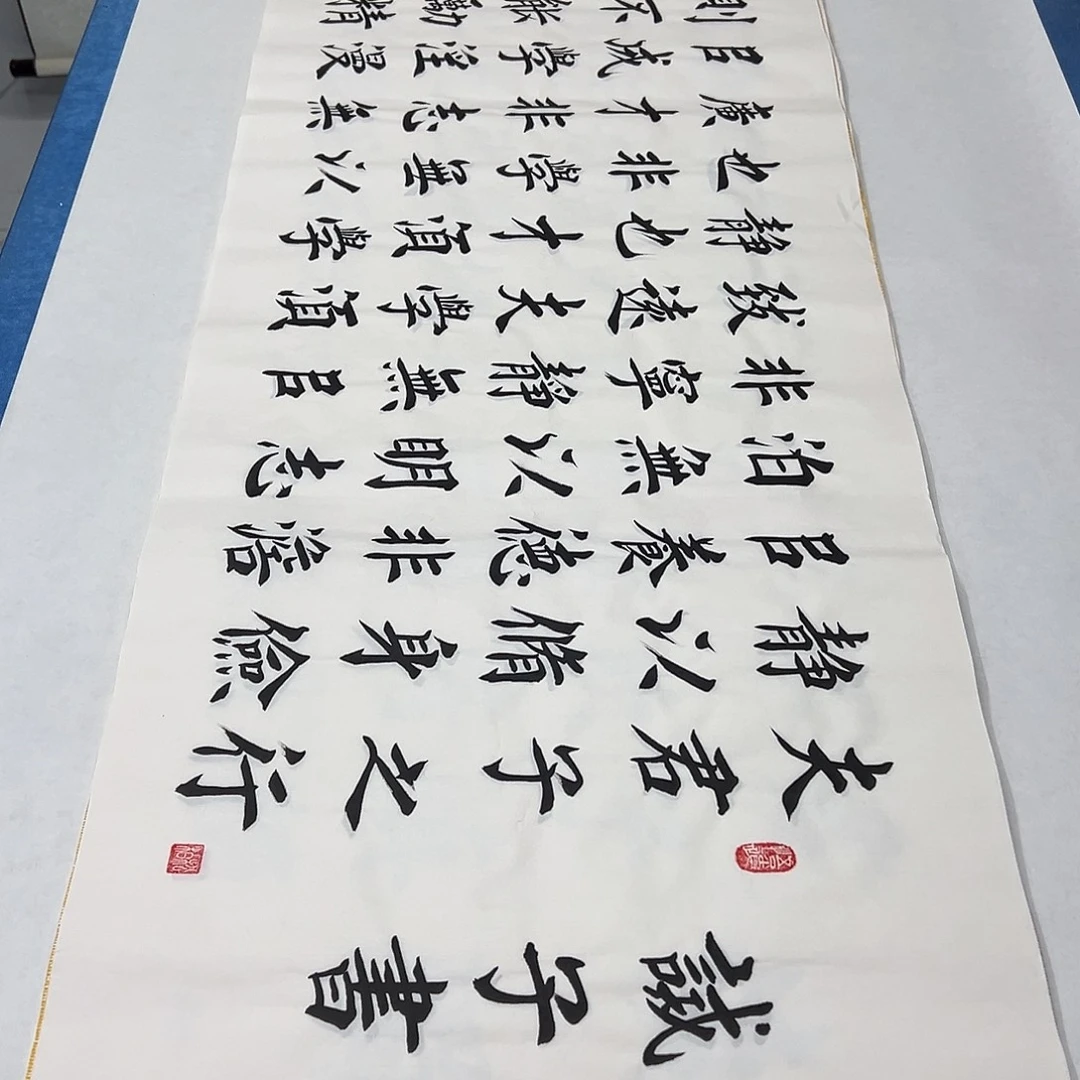 誡子書
夫君子之行
静以脩身儉
㠯養德非澹
泊無以明志
非寧静無㠯
致遠夫學須
静也才須學
也非學無以
廣才非志無
㠯成學淫漫
則不能勵精